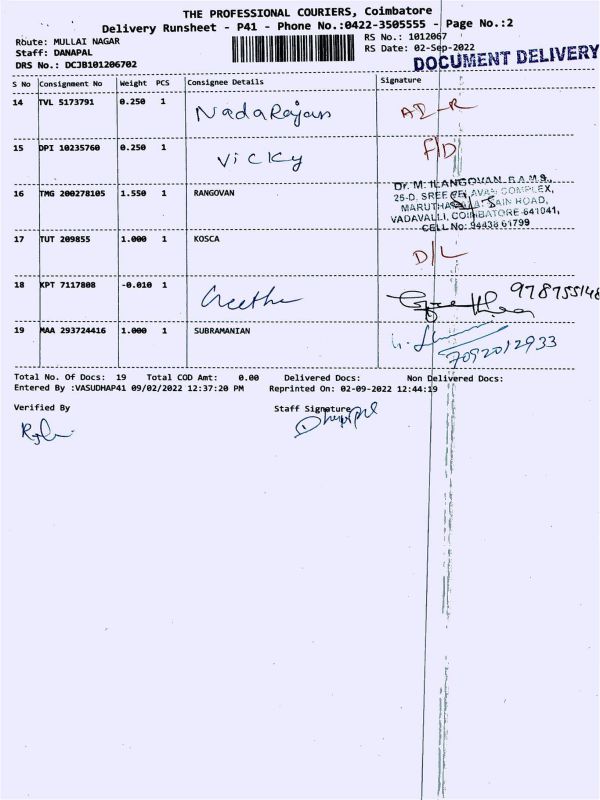 THE PROFESSIONAL COURIERS, Coimbatore
Delivery Runsheet - P41 - Phone No.:0422-3505555 - Page No.:2
Route: MULLAI NAGAR RS No.: 1012067
Staff: DANAPAL RS Date: 02-Sep-2022
DRS No.: DCJB101206702 DOCUMENT DELIVERY
S No Consignment No Weight PCS Consignee Details Signature
14 TVL 5173791 0.250 1 Nadarajan
15 DPI 10235760 0.250 1 Vicky F/D
16 TMG 200278105 1.550 1 RANGOVAN
Dr. M. ILANGOVAN, B.A.M.S.,
25-D, SREE COMPLEX,
ROAD,
VADAVALLI, COIMBATORE-641041,
CELL No: 94436 61799
17 TUT 209855 1.000 1 KOSCA D/L
18 KPT 7117808 -0.010 1 Geetha
19 MAA 293724416 1.000 1 SUBRAMANIAN 7092012933
Total No. Of Docs: 19 Total COD Amt: 0.00 Delivered Docs: Non Delivered Docs:
Entered By :VASUDHAP41 09/02/2022 12:37:20 PM Reprinted On: 02-09-2022 12:44:19
Verified By Staff Signature